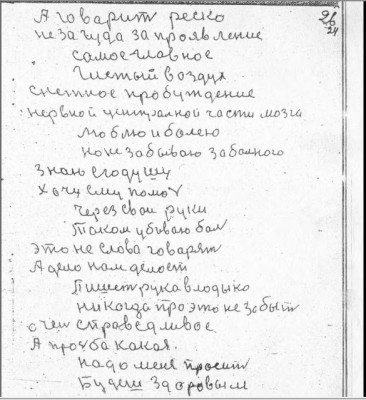 А говарит реско
26
24
не за чуда за проявление
самое главное
Чистый воздух
снежное пробуждение
нервной централной части мозга
люблю и болею
но не забываю за больного
знаю его душу
хочу ему помоч
через свои руки
Таком убиваю бол
это не слова говарят
А дело нам делоет
Пишет рука владыко
никогда про это не забыт
очен справедливое
А прозба какая.
надо меня просит
Будеш здоровым